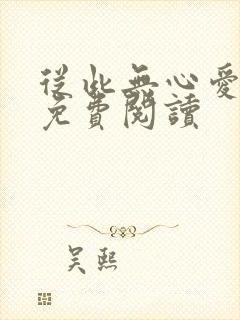 從此無心愛
免費閱讀
吳熙